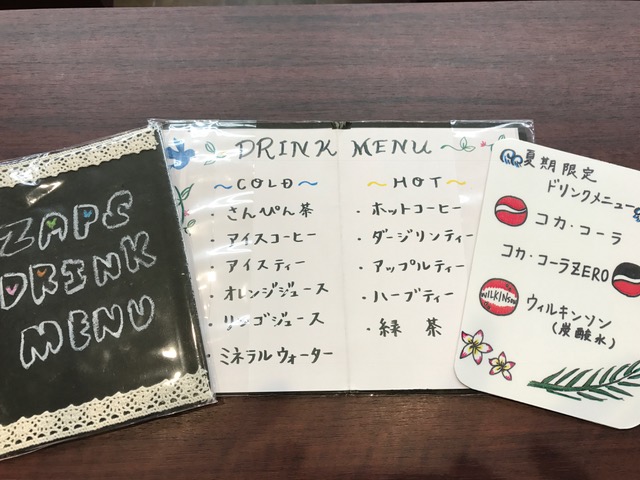 ZAPS
DRINK
MENU
DRINK MENU
～COLD～
・さんぴん茶
・アイスコーヒー
・アイスティー
・オレンジジュース
・リンゴジュース
・ミネラルウォーター
～HOT～
・ホットコーヒー
・ダージリンティー
・アップルティー
・ハーブティー
・緑茶
夏期限定
ドリンクメニュー
コカ・コーラ
コカ・コーラZERO
WILKINSON
ウィルキンソン
(炭酸水)